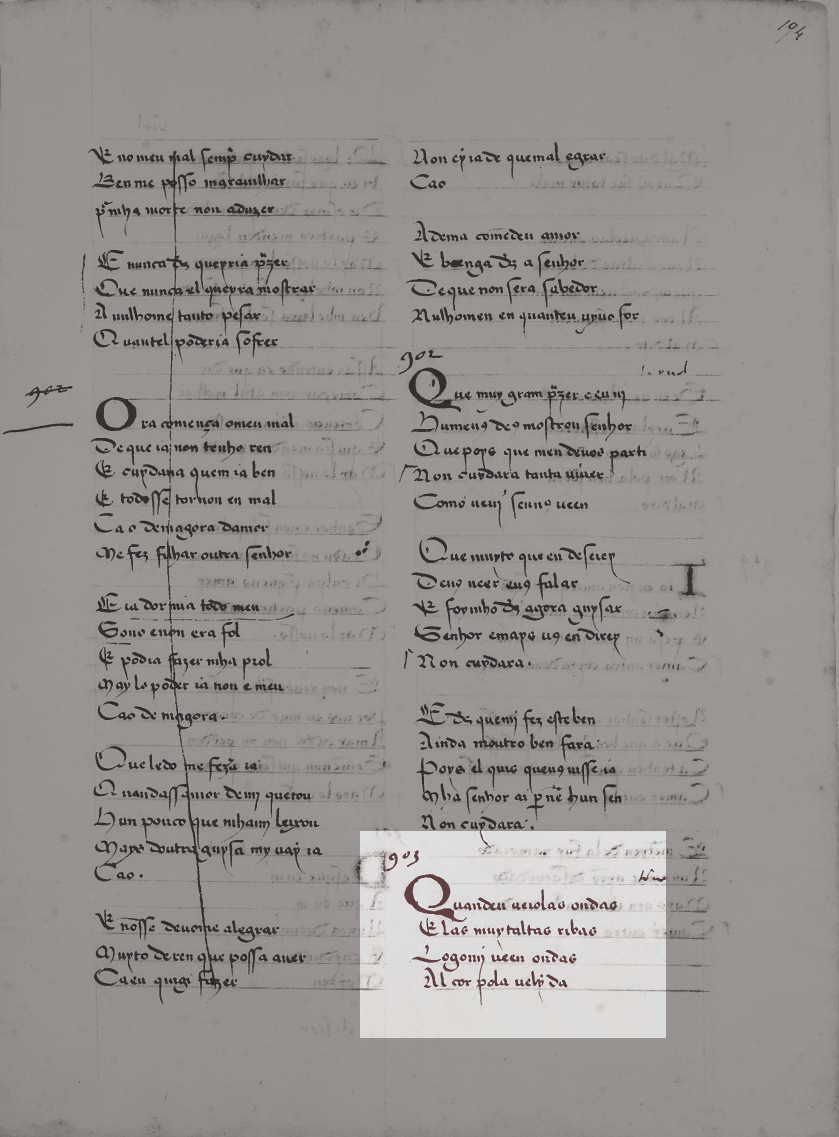 104
E no meu mal semp̃ cuydar
Ben me posso marauilhar
p̃ mha morte non aduzer
E nunca d̃s querria p̃zer
Que nunca el queyra mostrar
A nulhome tanto pesar
Quantel poderia sofrer
902
Ora começa omeu mal
De que ia non tenho ren
E cuydaua quem ia ben
E todosse tornon en mal
Ca o demagora damor
Me fez filhar outra senhor
E ia dormia todo meu
Sono e non era fol
E podia fazer mha prol
Mays lo poder ia non e meu
Cao de magora.
Que ledo me fezera ia
Quandassamor de mi quitou
Hun pouco que mhaun leixou
Mays doutra guysa my uay ia
Cao.
E nosse deuome alegrar
Muyto de ren que possa auer
Ca eu quige fazer
Non ey ia de que mal egrar
Cao
A dema come deu amor
E d̃s a senhor
De que non sera sabedor
Nulhomen en quanteu uyuo for
902
Que muy gram p̃zer ceu uj
Hu meu9 de9 mostrou senhor
Que poys que men deuos parti
Non cuydara tanta uiuer
Como ueni senno ueen
Que muyto que en deseiey
Deuo ueer eu9 falar
E foy mho d̃s agora guysar
Senhor e mays u9 en direy
Non cuydara.
I
E d̃s quemj fez este ben
Ainda moutro ben fara:
Poys el quis queu9 uisse ia
Mha senhor ar
Non cuydara:.
903
Quandeu ueiolas ondas
E las muytaltas ribas
Logomj ueen ondas
Al cor pola uelyda